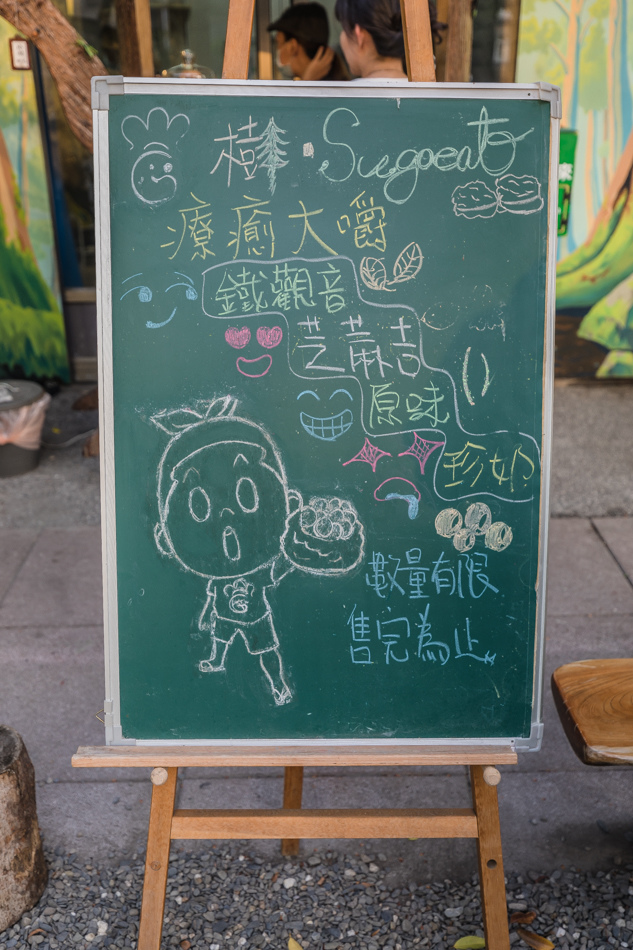 樹·Sugoeat
療癒大嚼
鐵觀音
芝蔴吉
原味
珍奶
數量有限
售完為止